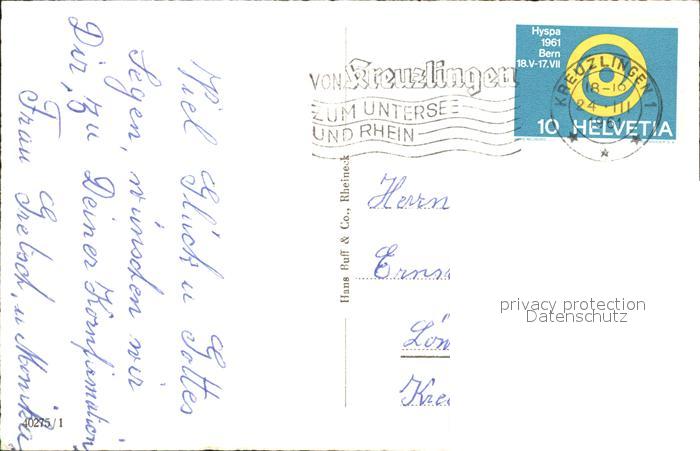 Viel Glück u Gottes
Segen, wünschen wir
Dir, zu Deiner Konfirmation
Frau Gretsch, u Monika
40275/1
Hans Buff & Co., Rheineck
VON Kreuzlingen
ZUM UNTERSEE
UND RHEIN
Hyspa
1961
Bern
18.V-17.VII
KREUZLINGEN 1
24. III
1961
10 HELVETIA
Herrn
Erns
Kre
privacy protection
Datenschutz